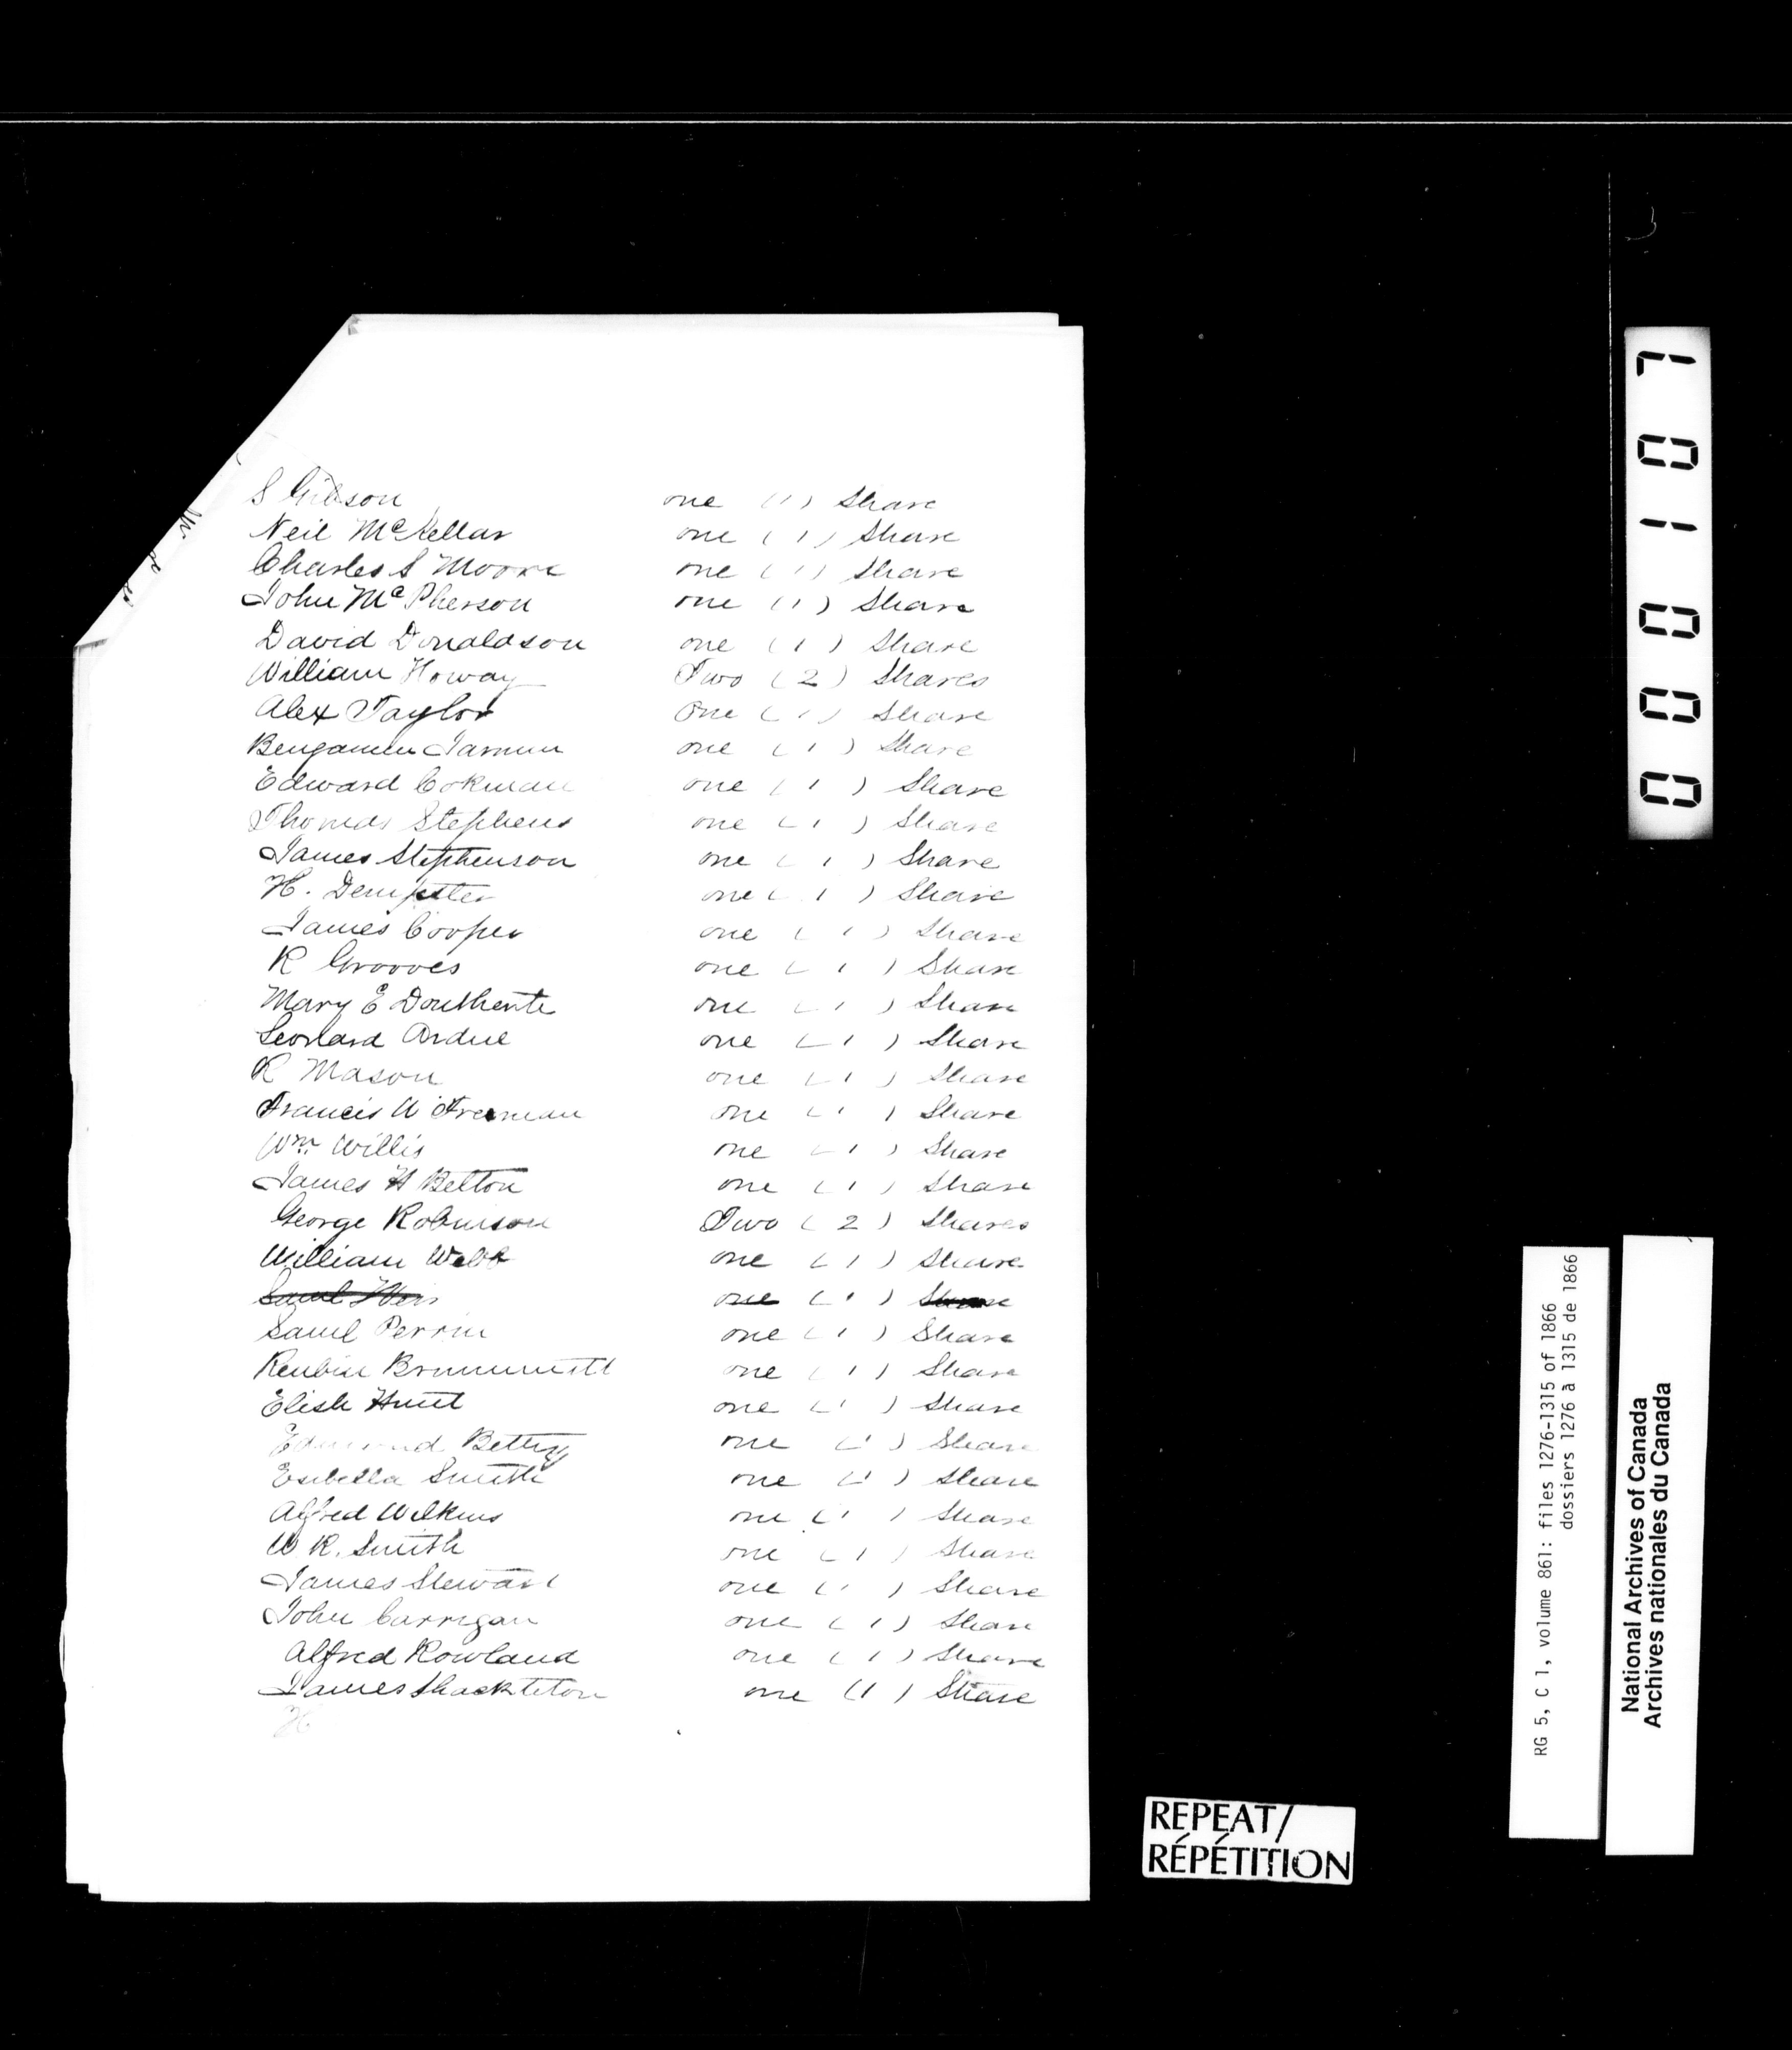 S Gibson one (1) Share
Neil McKellar one (1) Share
Charles S Moore one (1) Share
John McPherson one (1) Share
David Donaldson one (1) Share
William Howay Two (2) Shares
Alex Taylor One (1) Share
Benjamin one (1) Share
Edward Cokman one (1) Share
Thomas Stephens one (1) Share
James Stephenson one (1) Share
H. Dempster one (1) Share
James Cooper one (1) Share
R Grooves one (1) Share
Mary E one (1) Share
Leonard Ardue one (1) Share
R Mason one (1) Share
Francis W Freeman one (1) Share
Wm. Willis one (1) Share
James H Belton one (1) Share
George Robinson Two (2) Shares
William Webb one (1) Share
one (1) Share
Saml Perrin one (1) Share
Reubin one (1) Share
Elish Hunt one (1) Share
Edmond Betty one (1) Share
Esibella Smith one (1) Share
Alfred Wilkins one (1) Share
W R. Smith one (1) Share
James Stewart one (1) Share
John Carrigan one (1) Share
Alfred Rowland one (1) Share
James Shackleton one (1) Share
H
000107
RG 5, C 1, volume 861: files 1276-1315 of 1866
dossiers 1276 à 1315 de 1866
National Archives of Canada
Archives nationales du Canada
REPEAT/
RÉPÉTITION